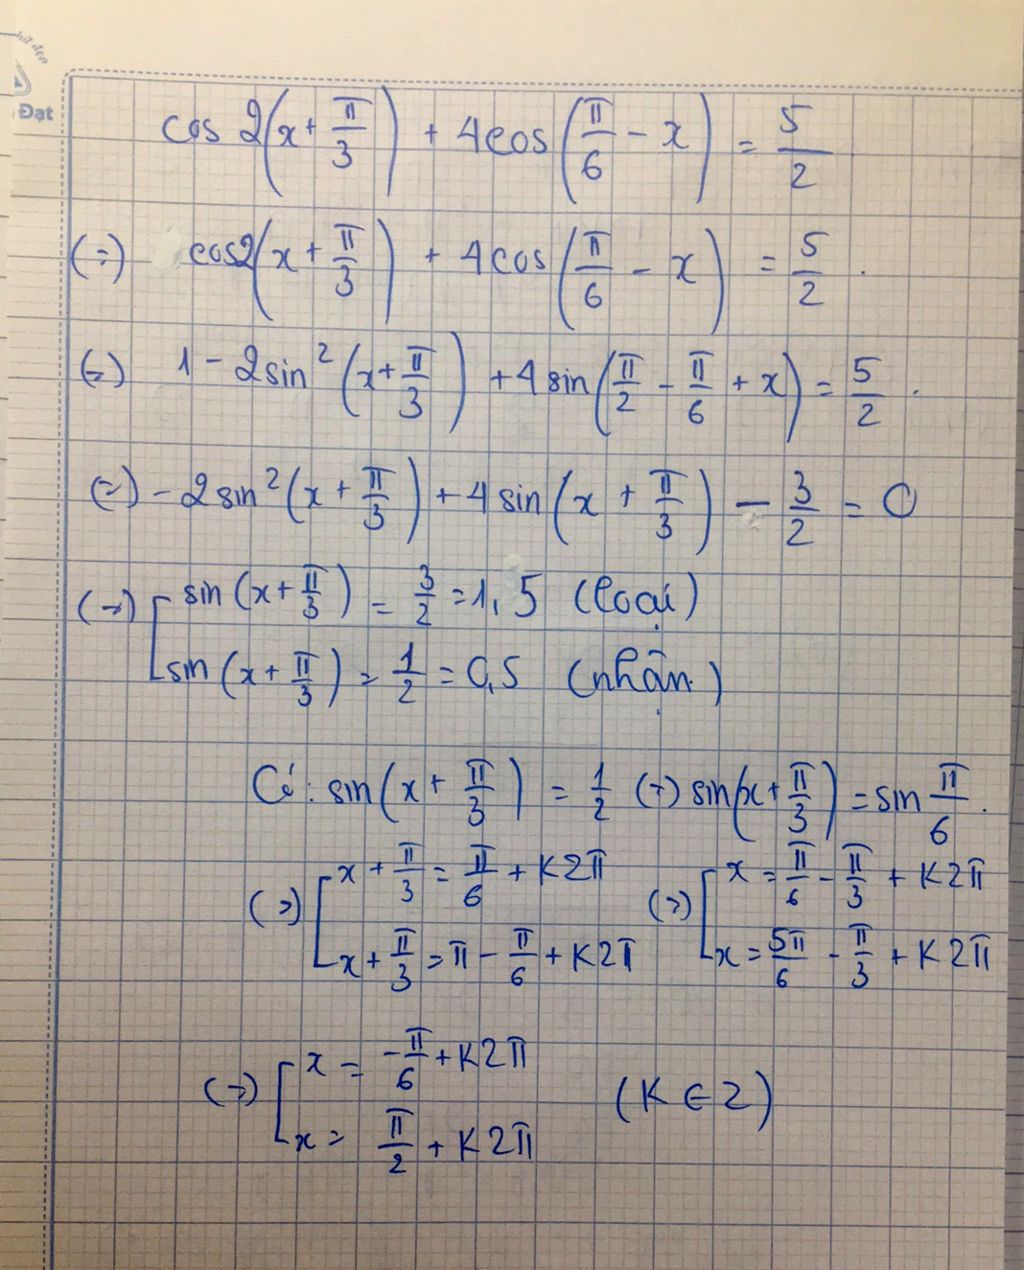 chữ đẹp
Đạt
cos 2(x + π/3) + 4cos(π/6 - x) = 5/2
(=) cos2(x + π/3) + 4cos(π/6 - x) = 5/2 .
(=) 1 - 2sin²(x + π/3) + 4sin(π/2 - π/6 + x) = 5/2 .
(=) - 2sin²(x + π/3) + 4sin(x + π/3) - 3/2 = 0
(=) [ sin(x + π/3) = 3/2 = 1,5 (loại)
sin(x + π/3) = 1/2 = 0,5 (nhận)
Có : sin(x + π/3) = 1/2 (=) sin(x + π/3) = sin π/6 .
(=) [ x + π/3 = π/6 + K2π (=) [ x = π/6 - π/3 + K2π
x + π/3 = π - π/6 + K2π x = 5π/6 - π/3 + K2π
(=) [ x = -π/6 + K2π (K ∈ Z)
x = π/2 + K2π